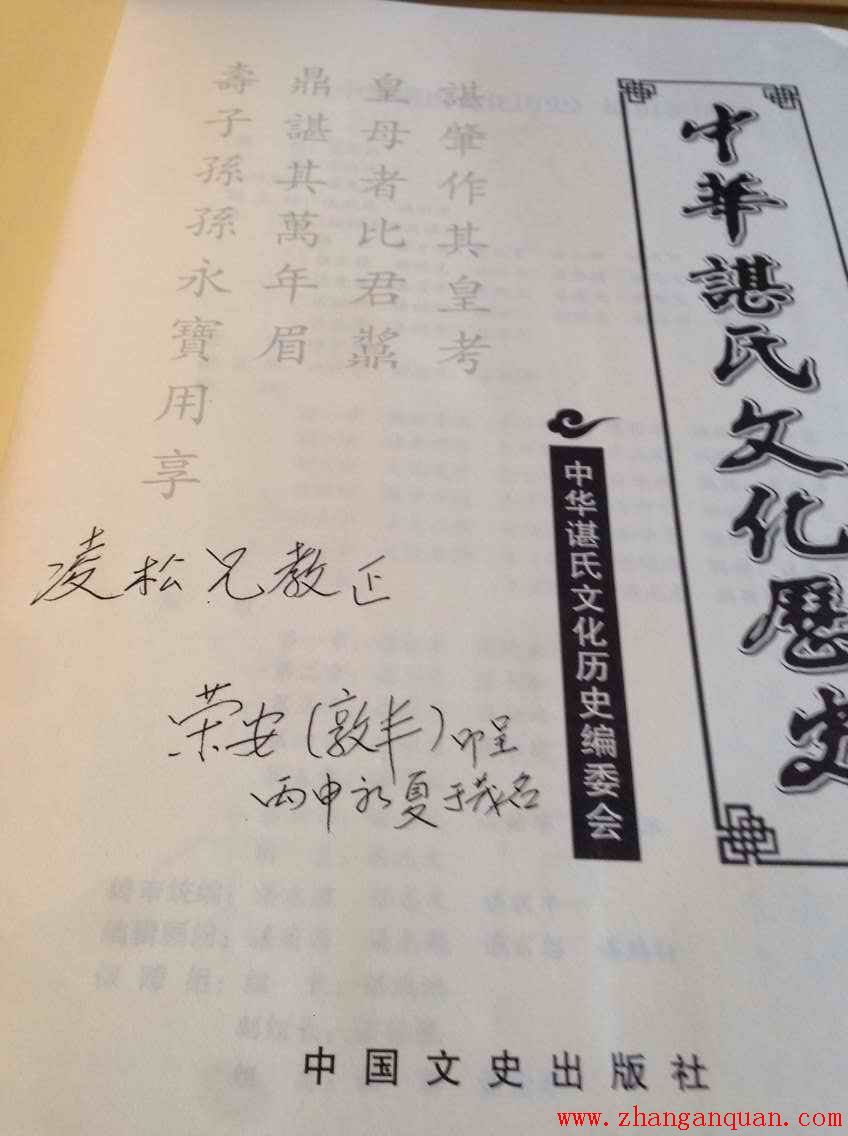 中華諶氏文化歷史
中华谌氏文化历史编委会
諶肇作其皇考
皇母者比君䵼
鼎諶其萬年眉
壽子孫孫永寶用享
凌松兄教正
荣安(敦半)印呈
丙申初夏于茂名
中国文史出版社
www.zhanganquan.com